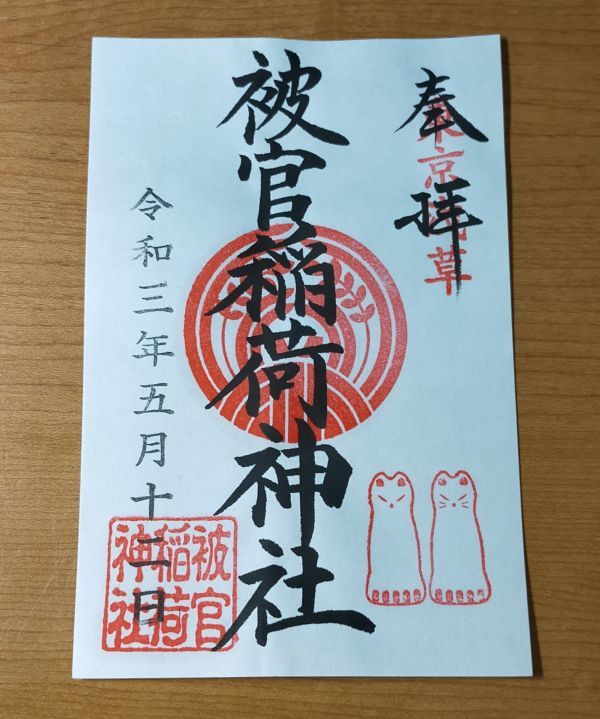 奉拝
東京浅草
被官稲荷神社
令和三年五月十二日
被官
稲荷
神社